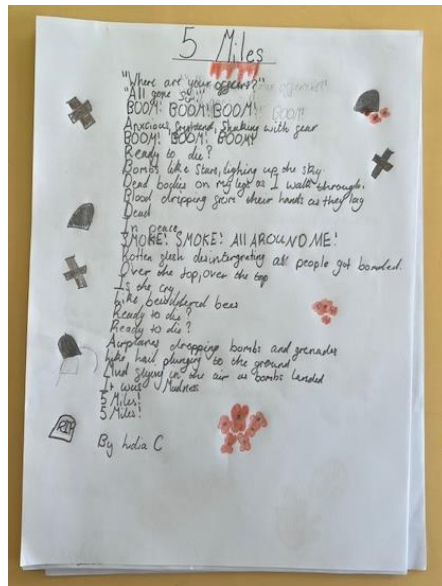 5 Miles
"Where are your officers?"
"All gone Sir!"
BOOM! BOOM! BOOM!
Anxcious, frigtend, Shaking with fear
BOOM! BOOM! BOOM!
Ready to die?
Bombs like stars, lighing up the sky.
Dead bodies on my legs as I walk through.
Blood dripping from their hands as they lay
Dead
In peace
SMOKE! SMOKE! All AROUND ME!
Rotten flesh disintergrating all people got bombed.
Over the top, over the top
Is the cry
Like bewildered bees
Ready to die?
Ready to die?
Airplanes dropping bombs and grenades
Like hail plunging to the ground
Mud flying in the air as bombs landed
It was Madness
5 Miles!
5 Miles!
RIP
By Lidia C